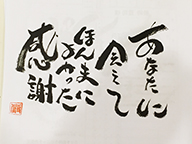 あなたに
会えて
ほんまに
よかった
感謝